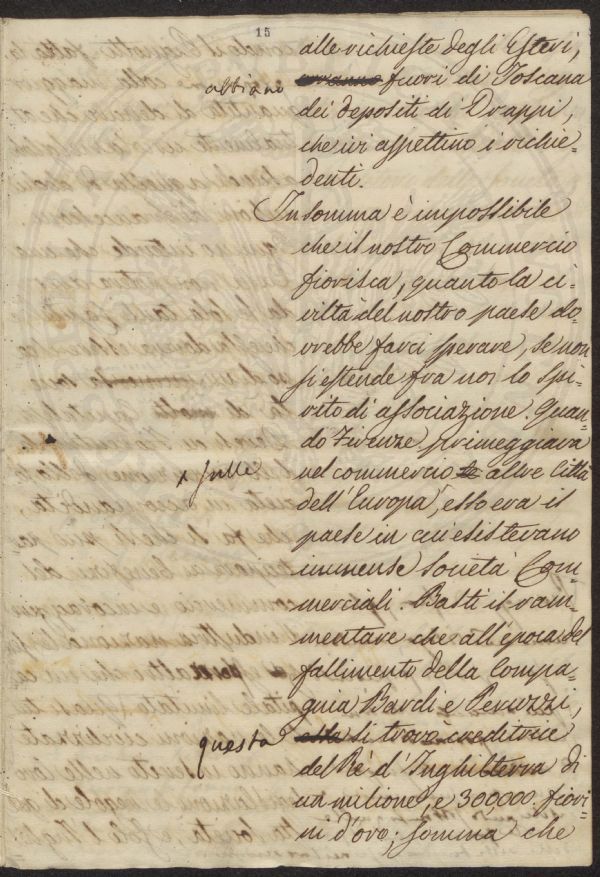 15
alle richieste degli Esteri,
abbiano fuori di Toscana
dei depositi di Drappi,
che ivi aspettino i richie-
denti.
Insomma è impossibile
che il nostro Commercio
fiorisca, quanto la ci-
viltà del nostro paese do-
vrebbe farci sperare, se non
si estende fra noi lo spi-
rito di associazione. Quan-
do Firenze primeggiava
nel commercio sulle altre Città
dell'Europa, esso era il
paese in cui esistevano
immense Società Com-
merciali. Basti il ram-
mentare che all'epoca del
fallimento della Compa-
gnia Bardi e Peruzzi,
questa si trovò creditrice
del Rè d'Inghilterra di
un milione, e 300,000 fiori-
ni d'oro; somma che